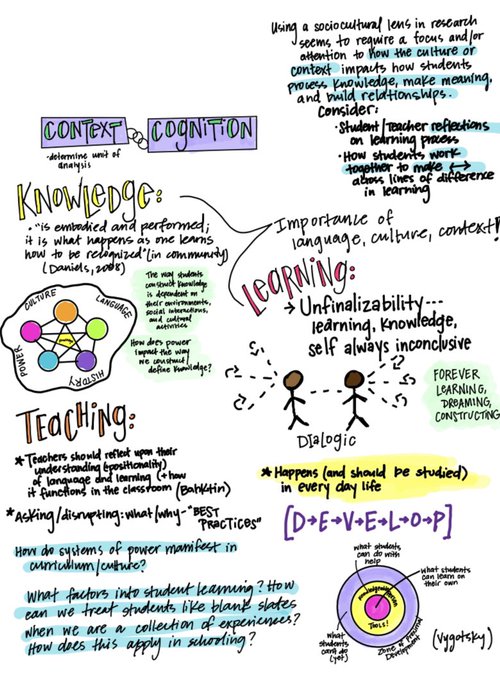 Using a sociocultural lens in research
seems to require a focus and/or
attention to how the culture or
context impacts how students
process knowledge, make meaning,
and build relationships.
Consider:
• Student/Teacher reflections
on learning process
• How students work
together to make ↔
across lines of difference
in learning
CONTEXT COGNITION
• determine unit of
analysis
KNOWLEDGE:
• "is embodied and performed;
it is what happens as one learns
how to be recognized" (in community)
(Daniels, 2008)
Importance of
language, culture, context!
LEARNING:
→ Unfinalizability---
learning, knowledge,
self always inconclusive
The way students
construct knowledge
is dependent on
their environments,
social interactions,
and cultural
activities
How does power
impact the way
we construct/
define knowledge?
CULTURE
LANGUAGE
POWER
HISTORY
DIALOGIC
FOREVER
LEARNING,
DREAMING,
CONSTRUCTING
TEACHING:
* Teachers should reflect upon their
understanding (+positionality)
of language and learning (+how
it functions in the classroom) (Bahktin)
* Asking/disrupting: what/why - "BEST
PRACTICES"
How do systems of power manifest in
curriculum/culture?
What factors into student learning? How
can we treat students like blank slates
when we are a collection of experiences?
How does this apply in schooling?
* Happens (and should be studied)
in every day life
[D→E→V→E→L→O→P]
what students
can do with
help
what students
can learn on
their own
TOOLS!
what
students
can't do
(yet)
Zone of Proximal
Development
(Vygotsky)